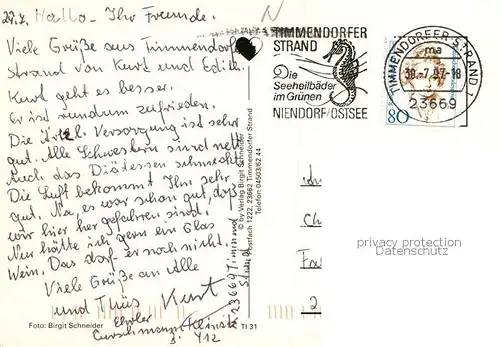 29.7. Hallo - Ihr Freunde.
Viele Grüße aus Timmendorf
Strand von Kurt und Edith.
Kurt geht es besser.
Er ist rundum zufrieden.
Die Ärztl. Versorgung ist sehr
gut. Alle Schwestern sind nett
Auch das Diätessen schmeckt.
Die Luft bekommt Ihm sehr
gut. Na, es war schon gut, daß
wir hier her gefahren sind.
Nur hätte ich gern ein Glas
Wein. Das darf er noch nicht.
Viele Grüße an Alle
und Tschüs Kurt
Curschmann Klinik
Z. 412
23669 Timmend
Strand
Foto: Birgit Schneider
TI 31
© by Verlag Birgit Schneider
Postfach 1222, 23662 Timmendorfer Strand
Telefon 04503/62 44
TIMMENDORFER
STRAND
Die
Seeheilbäder
im Grünen
NIENDORF/OSTSEE
TIMMENDORFER STRAND 1
ma
30.-7.97-18
23669
80
privacy protection
Datenschutz